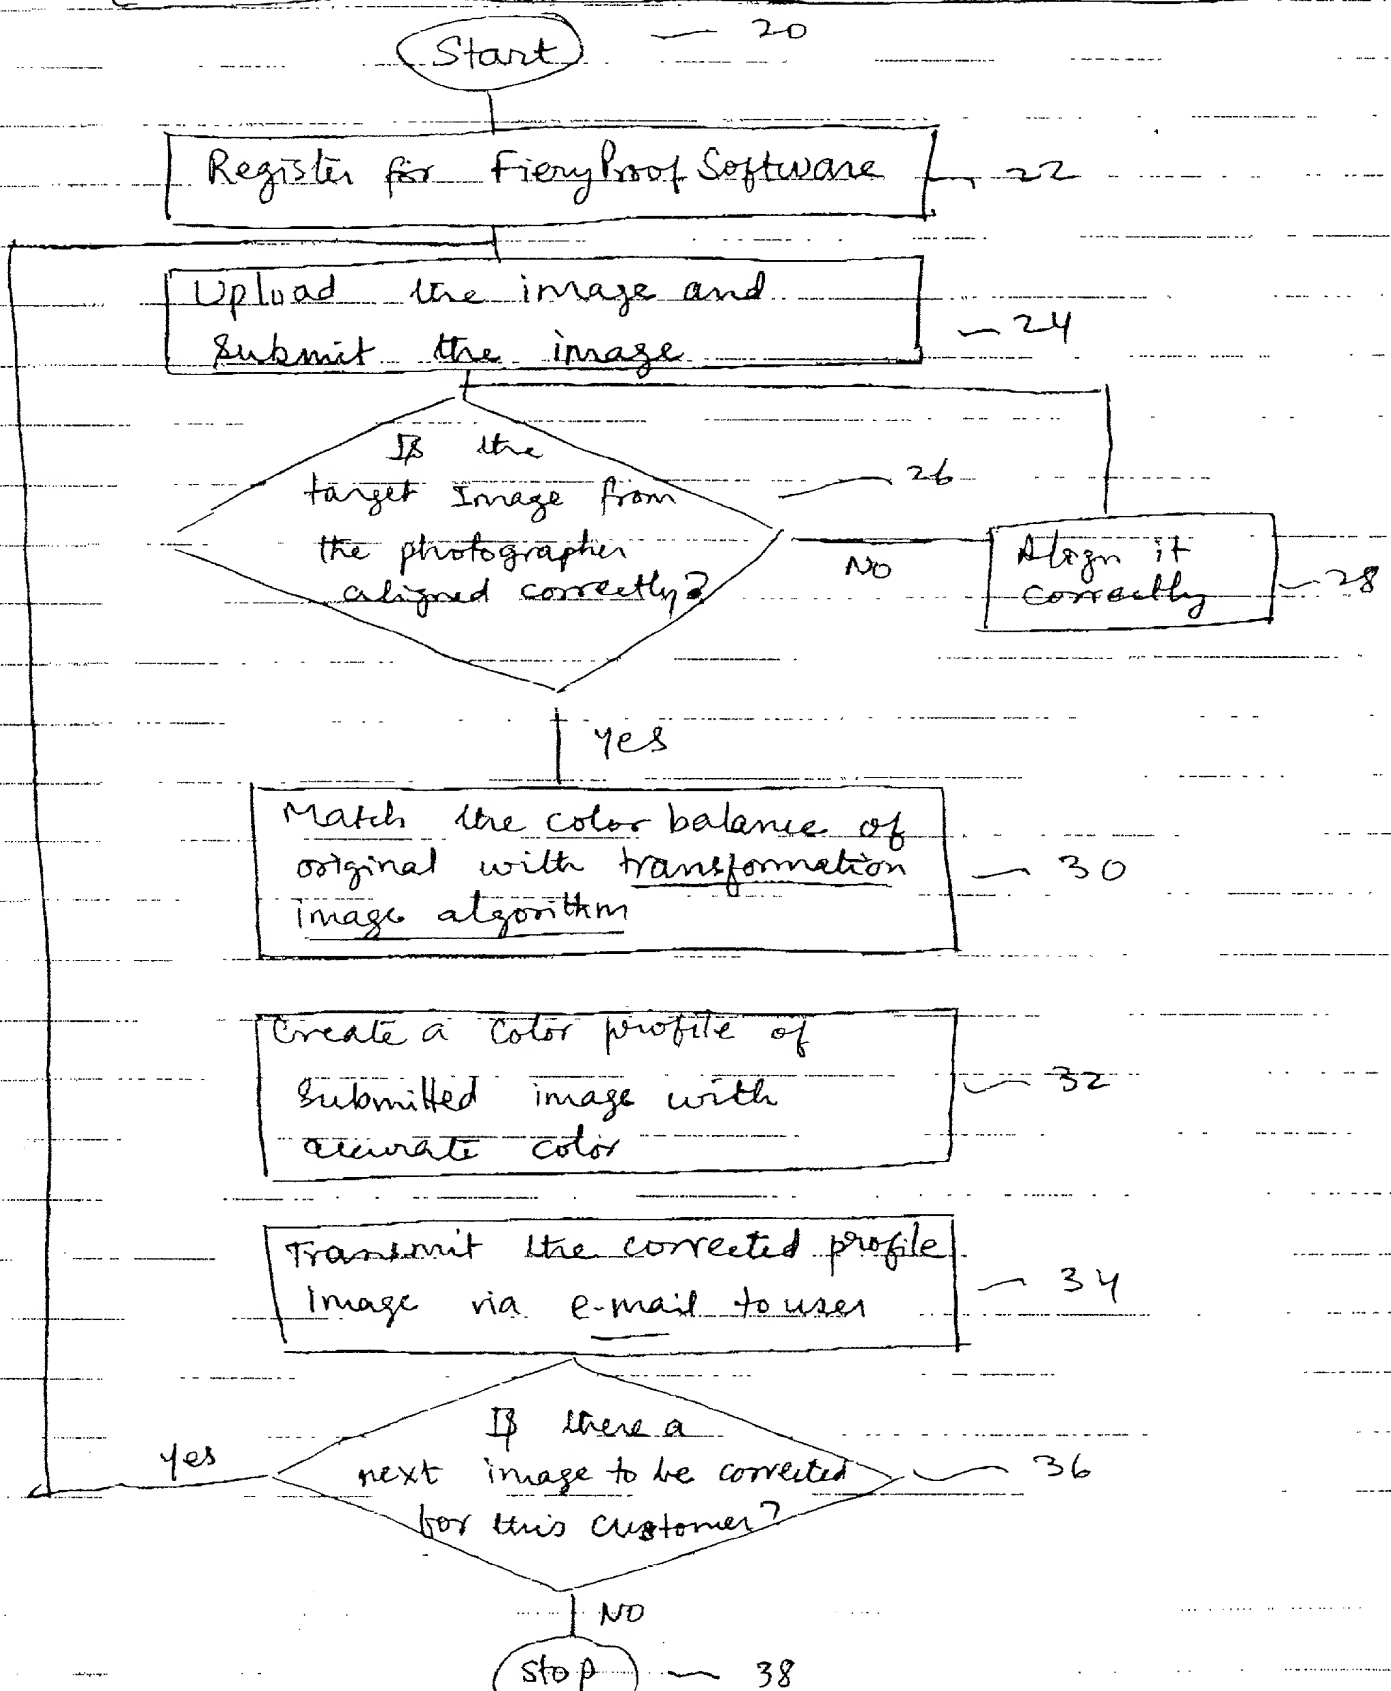 Start
20
Register for FieryProof Software
22
Upload the image and
Submit the image
24
Is the
target Image from
the photographer
aligned correctly?
26
NO
Align it
correctly
28
Yes
Match the color balance of
original with transformation
image algorithm
30
Create a color profile of
Submitted image with
accurate color
32
Transmit the corrected profile
Image via e-mail to user
34
Is there a
next image to be corrected
for this customer?
36
Yes
NO
Stop
38